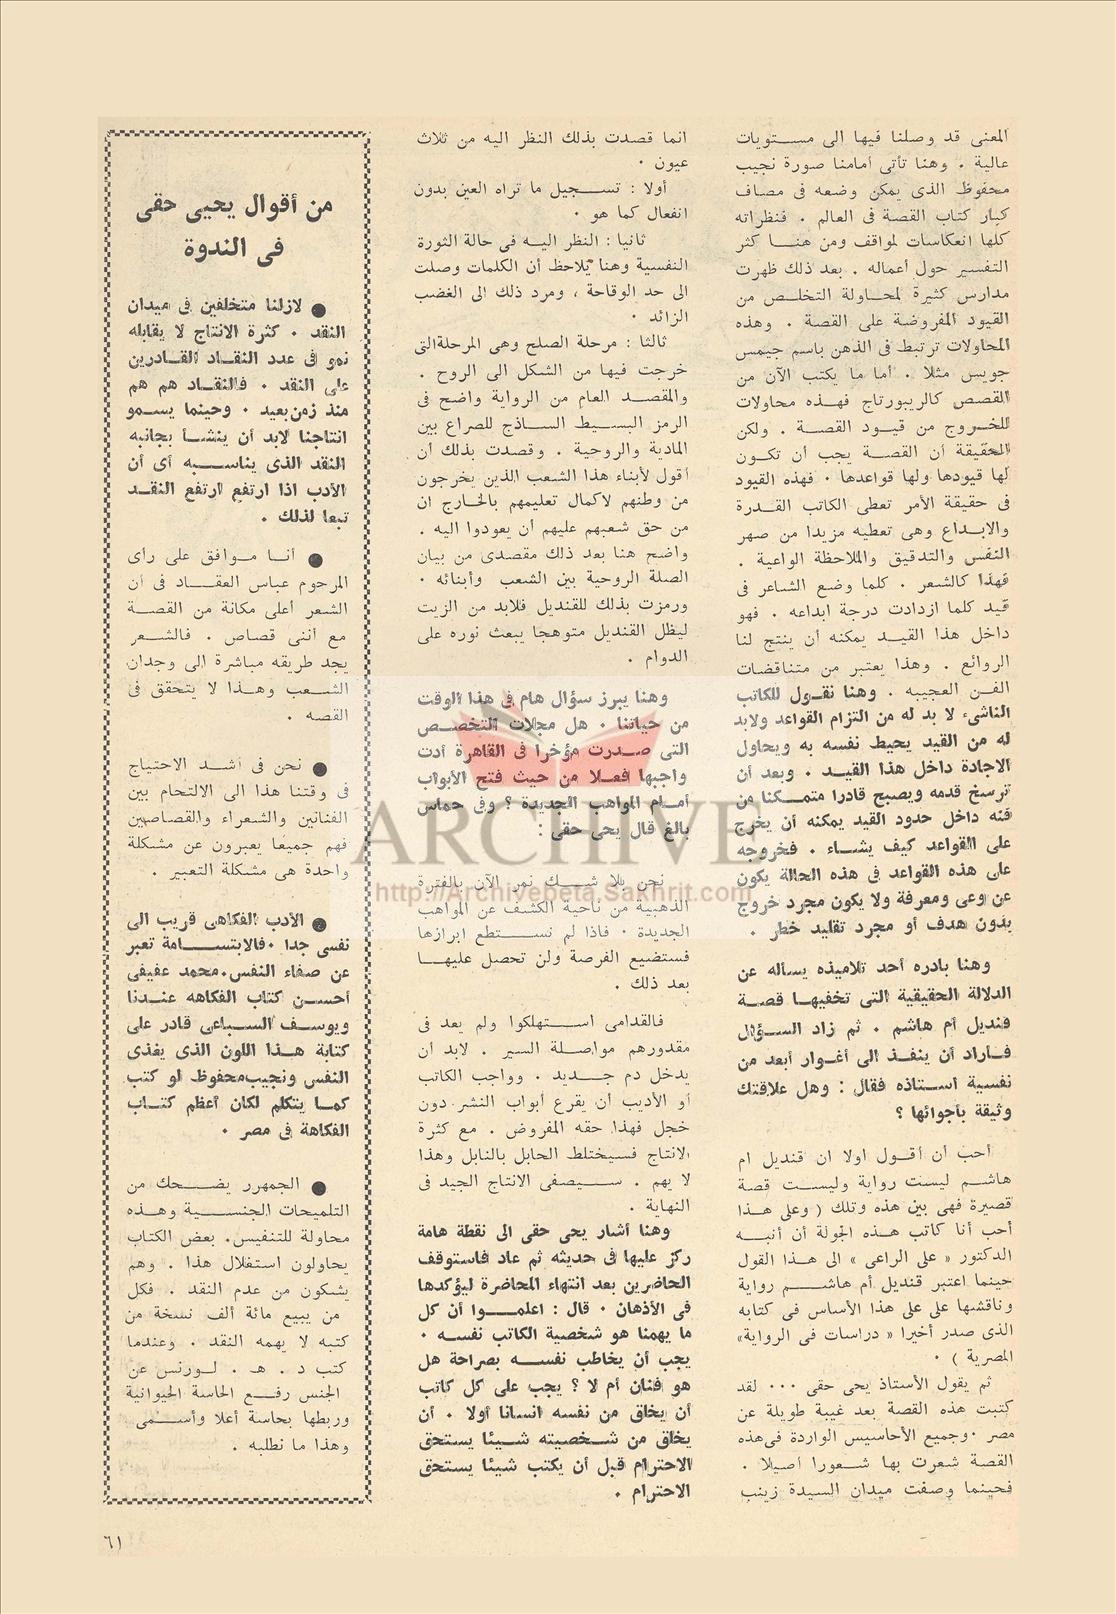 المعنى قد وصلنا فيها الى مستويات
عالية . وهنا تأتى أمامنا صورة نجيب
محفوظ الذى يمكن وضعه فى مصاف
كبار كتاب القصة فى العالم . فنظراته
كلها انعكاسات لمواقف ومن هنا كثر
التفسير حول أعماله . بعد ذلك ظهرت
مدارس كثيرة لمحاولة التخلص من
القيود المفروضة على القصة . وهذه
المحاولات ترتبط فى الذهن باسم جيمس
جويس مثلا . أما ما يكتب الآن من
القصص كالريبورتاج فهذه محاولات
للخروج من قيود القصة . ولكن
الحقيقة أن القصة يجب أن تكون
لها قيودها ولها قواعدها . فهذه القيود
فى حقيقة الأمر تعطى الكاتب القدرة
والابداع وهى تعطيه مزيدا من صهر
النفس والتدقيق والملاحظة الواعية .
فهذا كالشعر . كلما وضع الشاعر فى
قيد كلما ازدادت درجة ابداعه . فهو
داخل هذا القيد يمكنه أن ينتج لنا
الروائع . وهذا يعتبر من متناقضات
الفن العجيبه . وهنا نقول للكاتب
الناشىء لا بد له من التزام القواعد ولابد
له من القيد يحيط نفسه به ويحاول
الاجادة داخل هذا القيد . وبعد أن
ترسخ قدمه ويصبح قادرا متمكنا من
فنه داخل حدود القيد يمكنه أن يخرج
على القواعد كيف يشاء . فخروجه
على هذه القواعد فى هذه الحالة يكون
عن وعى ومعرفة ولا يكون مجرد خروج
بدون هدف أو مجرد تقليد خطر .
وهنا بادره أحد تلاميذه يسأله عن
الدلالة الحقيقية التى تخفيها قصة
قنديل أم هاشم . ثم زاد السؤال
فأراد أن ينفذ الى أغوار أبعد من
نفسية استاذه فقال : وهل علاقتك
وثيقة بأجوائها ؟
أحب أن أقول أولا ان قنديل أم
هاشم ليست رواية وليست قصة
قصيرة فهى بين هذه وتلك ( وعلى هذا
أحب أنا كاتب هذه الجولة أن أنبه
الدكتور « على الراعى » الى هذا القول
حينما اعتبر قنديل أم هاشم رواية
وناقشها على على هذا الأساس فى كتابه
الذى صدر أخيرا « دراسات فى الرواية»
المصرية ) .
ثم يقول الأستاذ يحى حقى ... لقد
كتبت هذه القصة بعد غيبة طويلة عن
مصر . وجميع الأحاسيس الواردة فى هذه
القصة شعرت بها شعورا أصيلا .
فحينما وصفت ميدان السيدة زينب
انما قصدت بذلك النظر اليه من ثلاث
عيون .
أولا : تسجيل ما تراه العين بدون
انفعال كما هو .
ثانيا : النظر اليه فى حالة الثورة
النفسية وهنا يلاحظ أن الكلمات وصلت
الى حد الوقاحة ، ومرد ذلك الى الغضب
الزائد .
ثالثا : مرحلة الصلح وهى المرحلةالتى
خرجت فيها من الشكل الى الروح .
والمقصد العام من الرواية واضح فى
الرمز البسيط الساذج للصراع بين
المادية والروحية . وقصدت بذلك أن
أقول لأبناء هذا الشعب الذين يخرجون
من وطنهم لاكمال تعليمهم بالخارج ان
من حق شعبهم عليهم أن يعودوا اليه .
واضح هنا بعد ذلك مقصدى من بيان
الصلة الروحية بين الشعب وأبنائه .
ورمزت بذلك للقنديل فلابد من الزيت
ليظل القنديل متوهجا يبعث نوره على
الدوام .
وهنا يبرز سؤال هام فى هذا الوقت
من حياتنا . هل مجلات التخصص
التى صدرت مؤخرا فى القاهرة أدت
واجبها فعلا من حيث فتح الأبواب
أمام المواهب الجديدة ؟ وفى حماس
بالغ قال يحى حقى :
نحن بلا شك نمر الآن بالفترة
الذهبية من ناحية الكشف عن المواهب
الجديدة . فاذا لم نستطع ابرازها
فستضيع الفرصة ولن تحصل عليها
بعد ذلك .
فالقدامى استهلكوا ولم يعد فى
مقدورهم مواصلة السير . لابد أن
يدخل دم جديد . وواجب الكاتب
أو الأديب أن يقرع أبواب النشر دون
خجل فهذا حقه المفروض . مع كثرة
الانتاج فسيختلط الحابل بالنابل وهذا
لا يهم . سيصفى الانتاج الجيد فى
النهاية .
وهنا أشار يحى حقى الى نقطة هامة
ركز عليها فى حديثه ثم عاد فاستوقف
الحاضرين بعد انتهاء المحاضرة ليؤكدها
فى الأذهان . قال : اعلموا أن كل
ما يهمنا هو شخصية الكاتب نفسه .
يجب أن يخاطب نفسه بصراحة هل
هو فنان أم لا ؟ يجب على كل كاتب
أن يخلق من نفسه انسانا أولا . أن
يخلق من شخصيته شيئا يستحق
الاحترام قبل أن يكتب شيئا يستحق
الاحترام .
من أقوال يحيى حقى
فى الندوة
● لازلنا متخلفين فى ميدان
النقد . كثرة الانتاج لا يقابله
نمو فى عدد النقاد القادرين
على النقد . فالنقاد هم هم
منذ زمن بعيد . وحينما يسمو
انتاجنا لابد أن ينشأ بجانبه
النقد الذى يناسبه أى أن
الأدب اذا ارتفع ارتفع النقد
تبعا لذلك .
● أنا موافق على رأى
المرحوم عباس العقاد فى أن
الشعر أعلى مكانة من القصة
مع أننى قصاص . فالشعر
يجد طريقه مباشرة الى وجدان
الشعب وهذا لا يتحقق فى
القصه .
● نحن فى أشد الاحتياج
فى وقتنا هذا الى الالتحام بين
الفنانين والشعراء والقصاصين
فهم جميعا يعبرون عن مشكلة
واحدة هى مشكلة التعبير .
● الأدب الفكاهى قريب الى
نفسى جدا . فالابتسامة تعبر
عن صفاء النفس.محمد عفيفى
أحسن كتاب الفكاهه عندنا
ويوسف السباعى قادر على
كتابة هذا اللون الذى يغذى
النفس ونجيب محفوظ لو كتب
كما يتكلم لكان أعظم كتاب
الفكاهة فى مصر .
● الجمهور يضحك من
التلميحات الجنسية وهذه
محاولة للتنفيس. بعض الكتاب
يحاولون استغلال هذا . وهم
يشكون من عدم النقد . فكل
من يبيع مائة ألف نسخة من
كتبه لا يهمه النقد . وعندما
كتب د . هـ . لورنس عن
الجنس رفع الحاسة الحيوانية
وربطها بحاسة أعلا وأسمى
وهذا ما نطلبه .
ARCHIVE
http://Archivebeta.Sakhrit.com
٦١